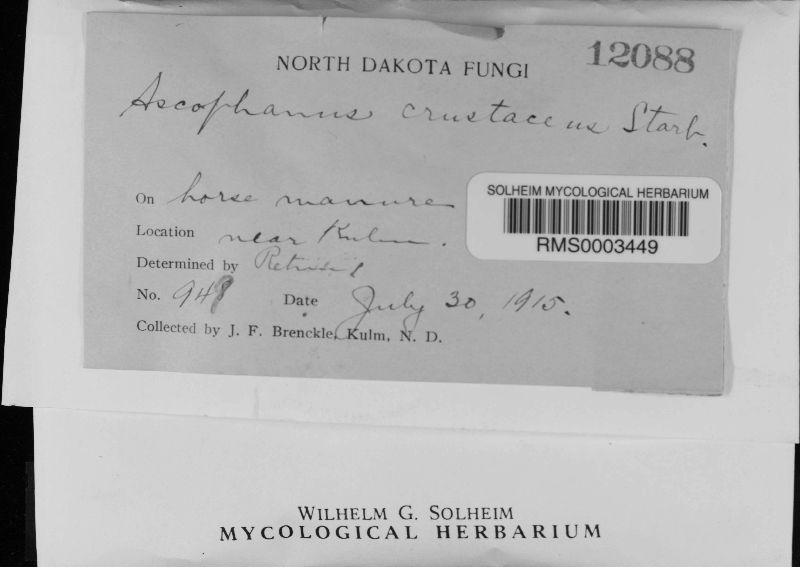 NORTH DAKOTA FUNGI 12088
Ascophanus crustaceus Starb.
On horse manure
Location near Kulm.
Determined by
No. 948 Date July 30, 1915.
Collected by J. F. Brenckle, Kulm, N. D.
SOLHEIM MYCOLOGICAL HERBARIUM
RMS0003449
WILHELM G. SOLHEIM
MYCOLOGICAL HERBARIUM